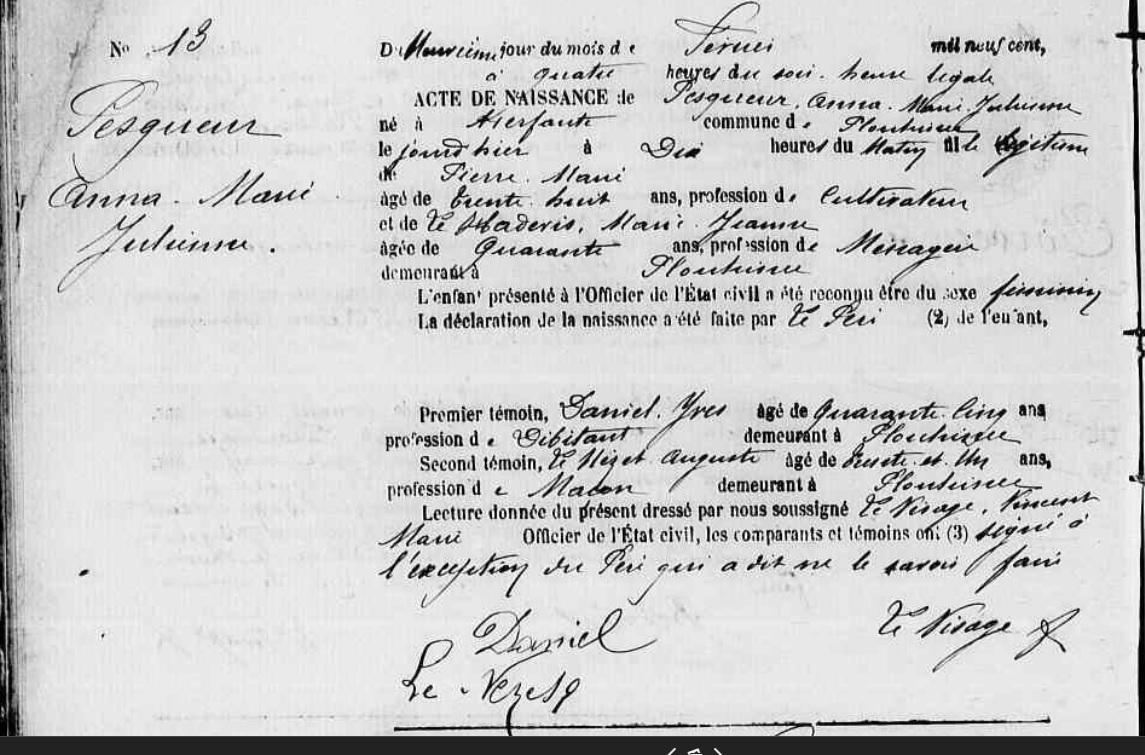 No 13
Du Neuvième jour du mois de Février mil neuf cent,
à quatre heures du soir. heure légale
ACTE DE NAISSANCE de Pesqueur, Anna. Marie. Julienne
né à commune de Plouhinec
le jourd'hier à Dix heures du Matin fille légitime
de Pierre. Marie
âgé de trente huit ans, profession de Cultivateur
et de Marie. Jeanne
âgée de Quarante ans, profession de Ménagère
demeurant à Plouhinec
Pesqueur
Anna. Marie
Julienne.
L'enfant présenté à l'Officier de l'État civil a été reconnu être du sexe féminin
La déclaration de la naissance a été faite par le Père (2) de l'enfant,
Premier témoin, Daniel. Yves âgé de quarante. Cinq ans
profession de Débitant demeurant à Plouhinec
Second témoin, Le Nézet. Auguste âgé de trente. et. Un ans,
profession de Maçon demeurant à Plouhinec
Lecture donnée du présent dressé par nous soussigné Le Visage, Vincent
Marie Officier de l'État civil, les comparants et témoins ont (3) signé à
l'exception du Père qui a dit ne le savoir faire
Daniel Le Visage
Le